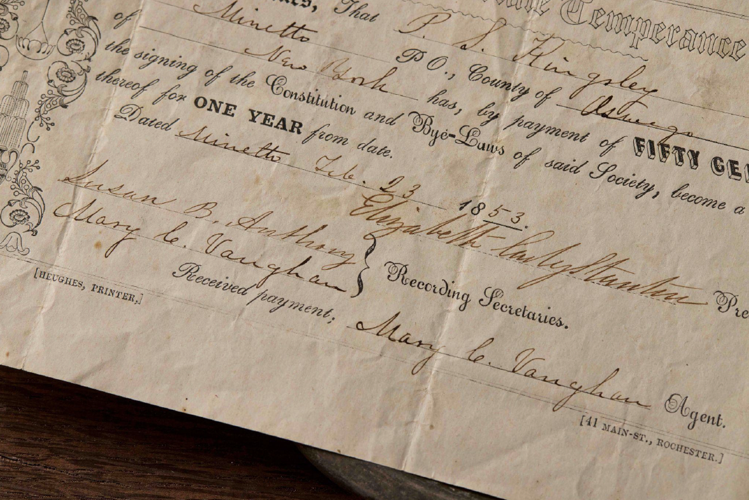 That P. S. Kingsley
Temperance
of Minetto P O., County of Oswego
New York has, by payment of FIFTY CE
the signing of the Constitution and Bye-Laws of said Society, become a
thereof for ONE YEAR from date.
Dated Minetto Feb. 23 1853.
Elizabeth Cady Stanton Pre
Susan B. Anthony
Mary C. Vaughan } Recording Secretaries.
Received payment, Mary C. Vaughan Agent.
[HEUGHES, PRINTER,] [41 MAIN-ST., ROCHESTER.]